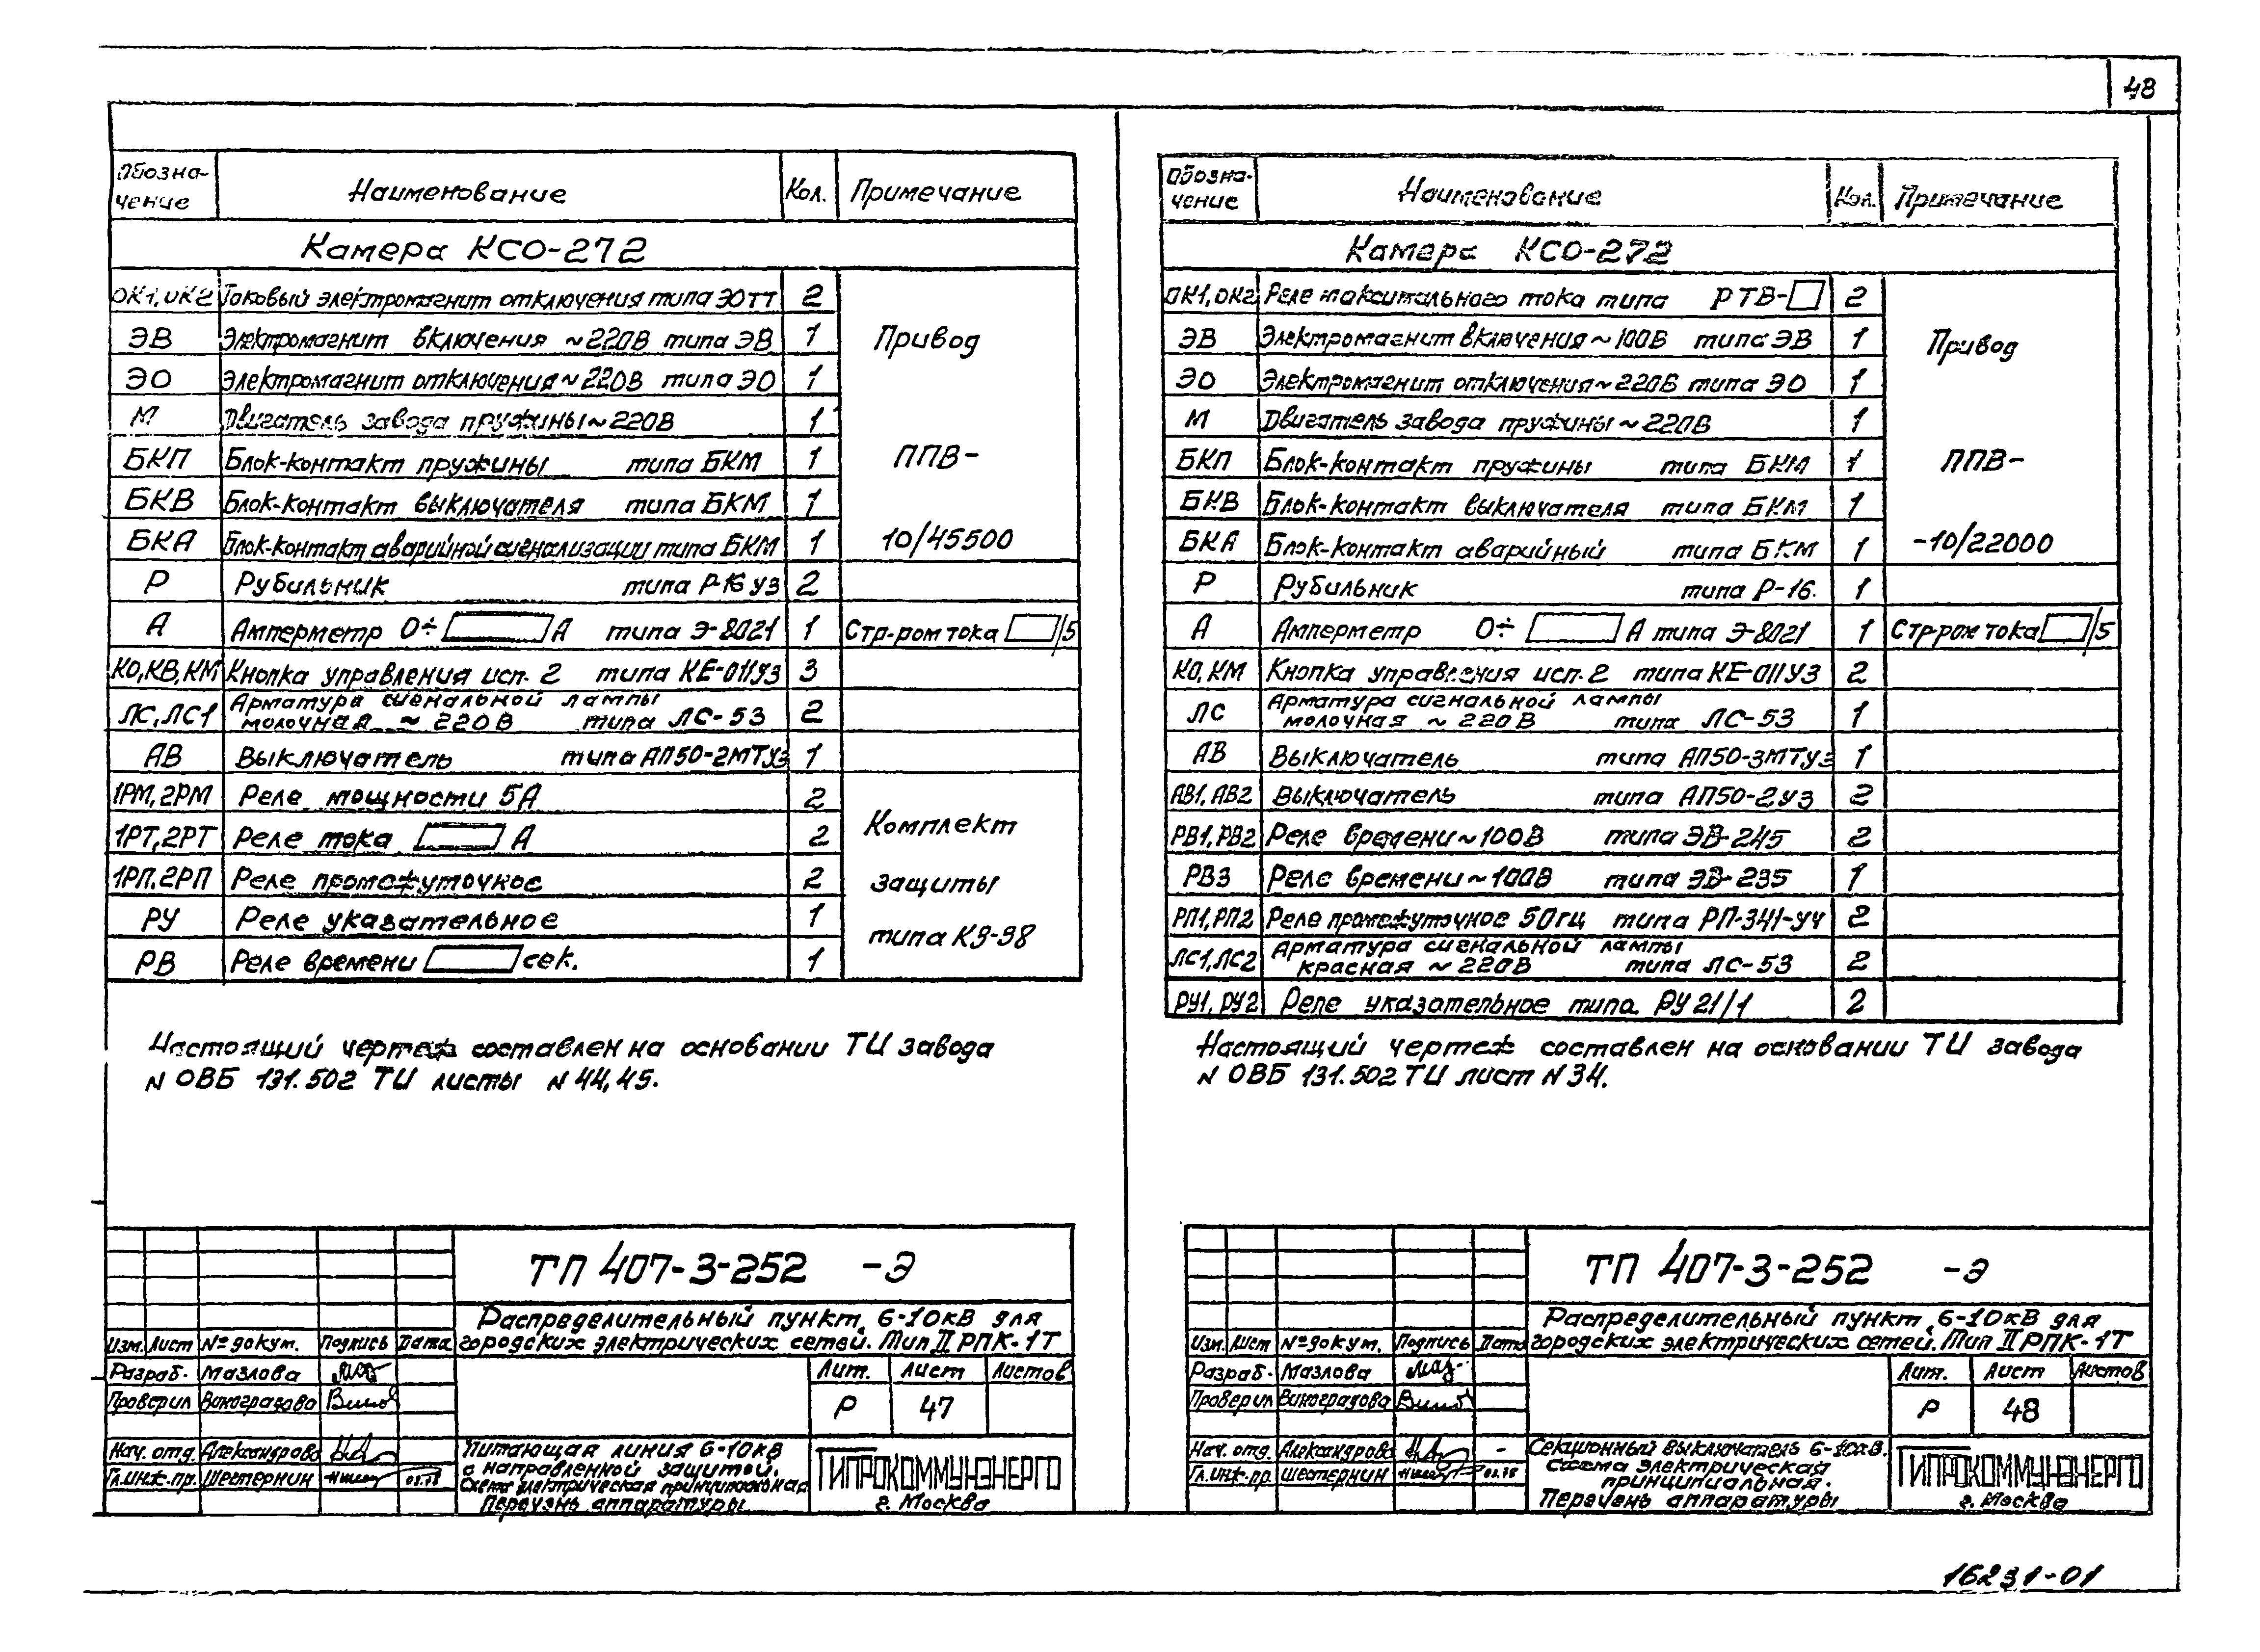 48
Обозна-чение Наименование Кол. Примечание
Камера КСО-272
ОК1, ОК2 Токовый электромагнит отключения типа ЭОТТ 2
ЭВ Электромагнит включения ~220В типа ЭВ 1 Привод
ЭО Электромагнит отключения ~220В типа ЭО 1
М Двигатель завода пружины ~220В 1
БКП Блок-контакт пружины типа БКМ 1 ППВ-
БКВ Блок-контакт выключателя типа БКМ 1
БКА Блок-контакт аварийной сигнализации типа БКМ 1 10/45500
Р Рубильник типа Р-16 У3 2
А Амперметр 0÷ А типа Э-8021 1 Стр-ром тока /5
КО, КВ, КМ Кнопка управления исп. 2 типа КЕ-011У3 3
ЛС, ЛС1 Арматура сигнальной лампы
молочная ~220В типа ЛС-53 2
АВ Выключатель типа АП50-2МТУ3 1
1РМ, 2РМ Реле мощности 5А 2
1РТ, 2РТ Реле тока А 2 Комплект
1РП, 2РП Реле промежуточное 2 защиты
РУ Реле указательное 1
РВ Реле времени сек. 1 типа КЗ-38
Настоящий чертеж составлен на основании ТИ завода
N ОВБ 131.502 ТИ листы N 44,45.
ТП 407-3-252 -Э
Распределительный пункт 6-10кВ для
городских электрических сетей. Тип II РПК-1Т
Изм. Лист №докум. Подпись Дата
Разраб. Мазлова
Проверил Виноградова
Нач. отд. Александрова
Гл.инж.пр. Шестернин 03.78
Лит. Лист Листов
Р 47
Питающая линия 6-10кв
с направленной защитой.
Схема электрическая принципиальная
Перечень аппаратуры
ГИПРОКОММУНЭНЕРГО
г. Москва
Обозна-чение Наименование Кол. Примечание
Камера КСО-272
ОК1, ОК2 Реле максимального тока типа РТВ- 2
ЭВ Электромагнит включения ~100В типа ЭВ 1 Привод
ЭО Электромагнит отключения ~220В типа ЭО 1
М Двигатель завода пружины ~220В 1
БКП Блок-контакт пружины типа БКМ 1 ППВ-
БКВ Блок-контакт выключателя типа БКМ 1
БКА Блок-контакт аварийный типа БКМ 1 -10/22000
Р Рубильник типа Р-16. 1
А Амперметр 0÷ А типа Э-8021 1 Стр-ром тока /5
КО, КМ Кнопка управления исп. 2 типа КЕ-011У3 2
ЛС Арматура сигнальной лампы
молочная ~220В типа ЛС-53 1
АВ Выключатель типа АП50-3МТУ3 1
АВ1, АВ2 Выключатель типа АП50-2У3 2
РВ1, РВ2 Реле времени ~100В типа ЭВ-245 2
РВ3 Реле времени ~100В типа ЭВ-235 1
РП1, РП2 Реле промежуточное 50гц типа РП-341-УЧ 2
ЛС1, ЛС2 Арматура сигнальной лампы
красная ~220В типа ЛС-53 2
РУ1, РУ2 Реле указательное типа РУ 21/1 2
Настоящий чертеж составлен на основании ТИ завода
N ОВБ 131.502 ТИ лист N 34.
ТП 407-3-252 -Э
Распределительный пункт 6-10кВ для
городских электрических сетей. Тип II РПК-1Т
Изм. Лист №докум. Подпись Дата
Разраб. Мазлова
Проверил Виноградова
Нач. отд. Александрова
Гл.инж.пр. Шестернин 03.78
Лит. Лист Листов
Р 48
Секционный выключатель 6-10кв.
Схема электрическая
принципиальная.
Перечень аппаратуры
ГИПРОКОММУНЭНЕРГО
г. Москва
16231-01